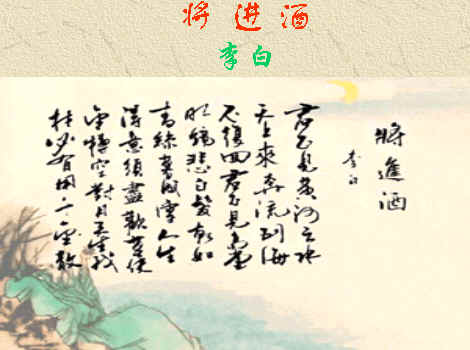 将进酒
李白
將進酒
李白
君不見黃河之水
天上來奔流到海
不復回君不見高堂
明鏡悲白髮朝如
青絲暮成雪人生
得意須盡歡莫使
金樽空對月天生我
材必有用千金散